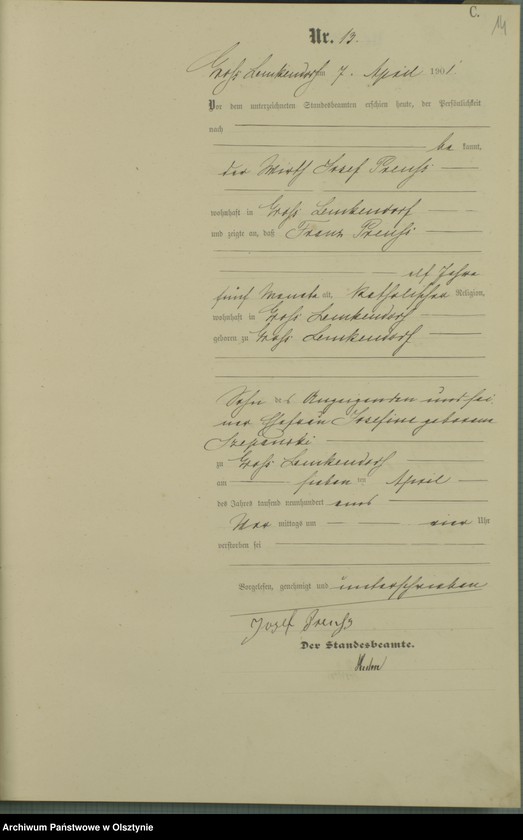 C.
14
Nr. 13.
Gross Lemkendorf am 7. April 1901.
Vor dem unterzeichneten Standesbeamten erschien heute, der Persönlichkeit
nach
be kannt,
der Wirth Josef Preuß
wohnhaft in Groß Lemkendorf
und zeigte an, daß Franz Preuß
elf Jahre
fünf Monate alt, katholischer Religion,
wohnhaft in Groß Lemkendorf
geboren zu Groß Lemkendorf
Sohn des Anzeigenden und sei-
ner Ehefrau Josefine geborene
Szepanski
zu Groß Lemkendorf
am sieben ten April
des Jahres tausend neunhundert eins
Vor mittags um Uhr
verstorben sei
Vorgelesen, genehmigt und unterschrieben
Josef Preuß
Der Standesbeamte.
Archiwum Państwowe w Olsztynie